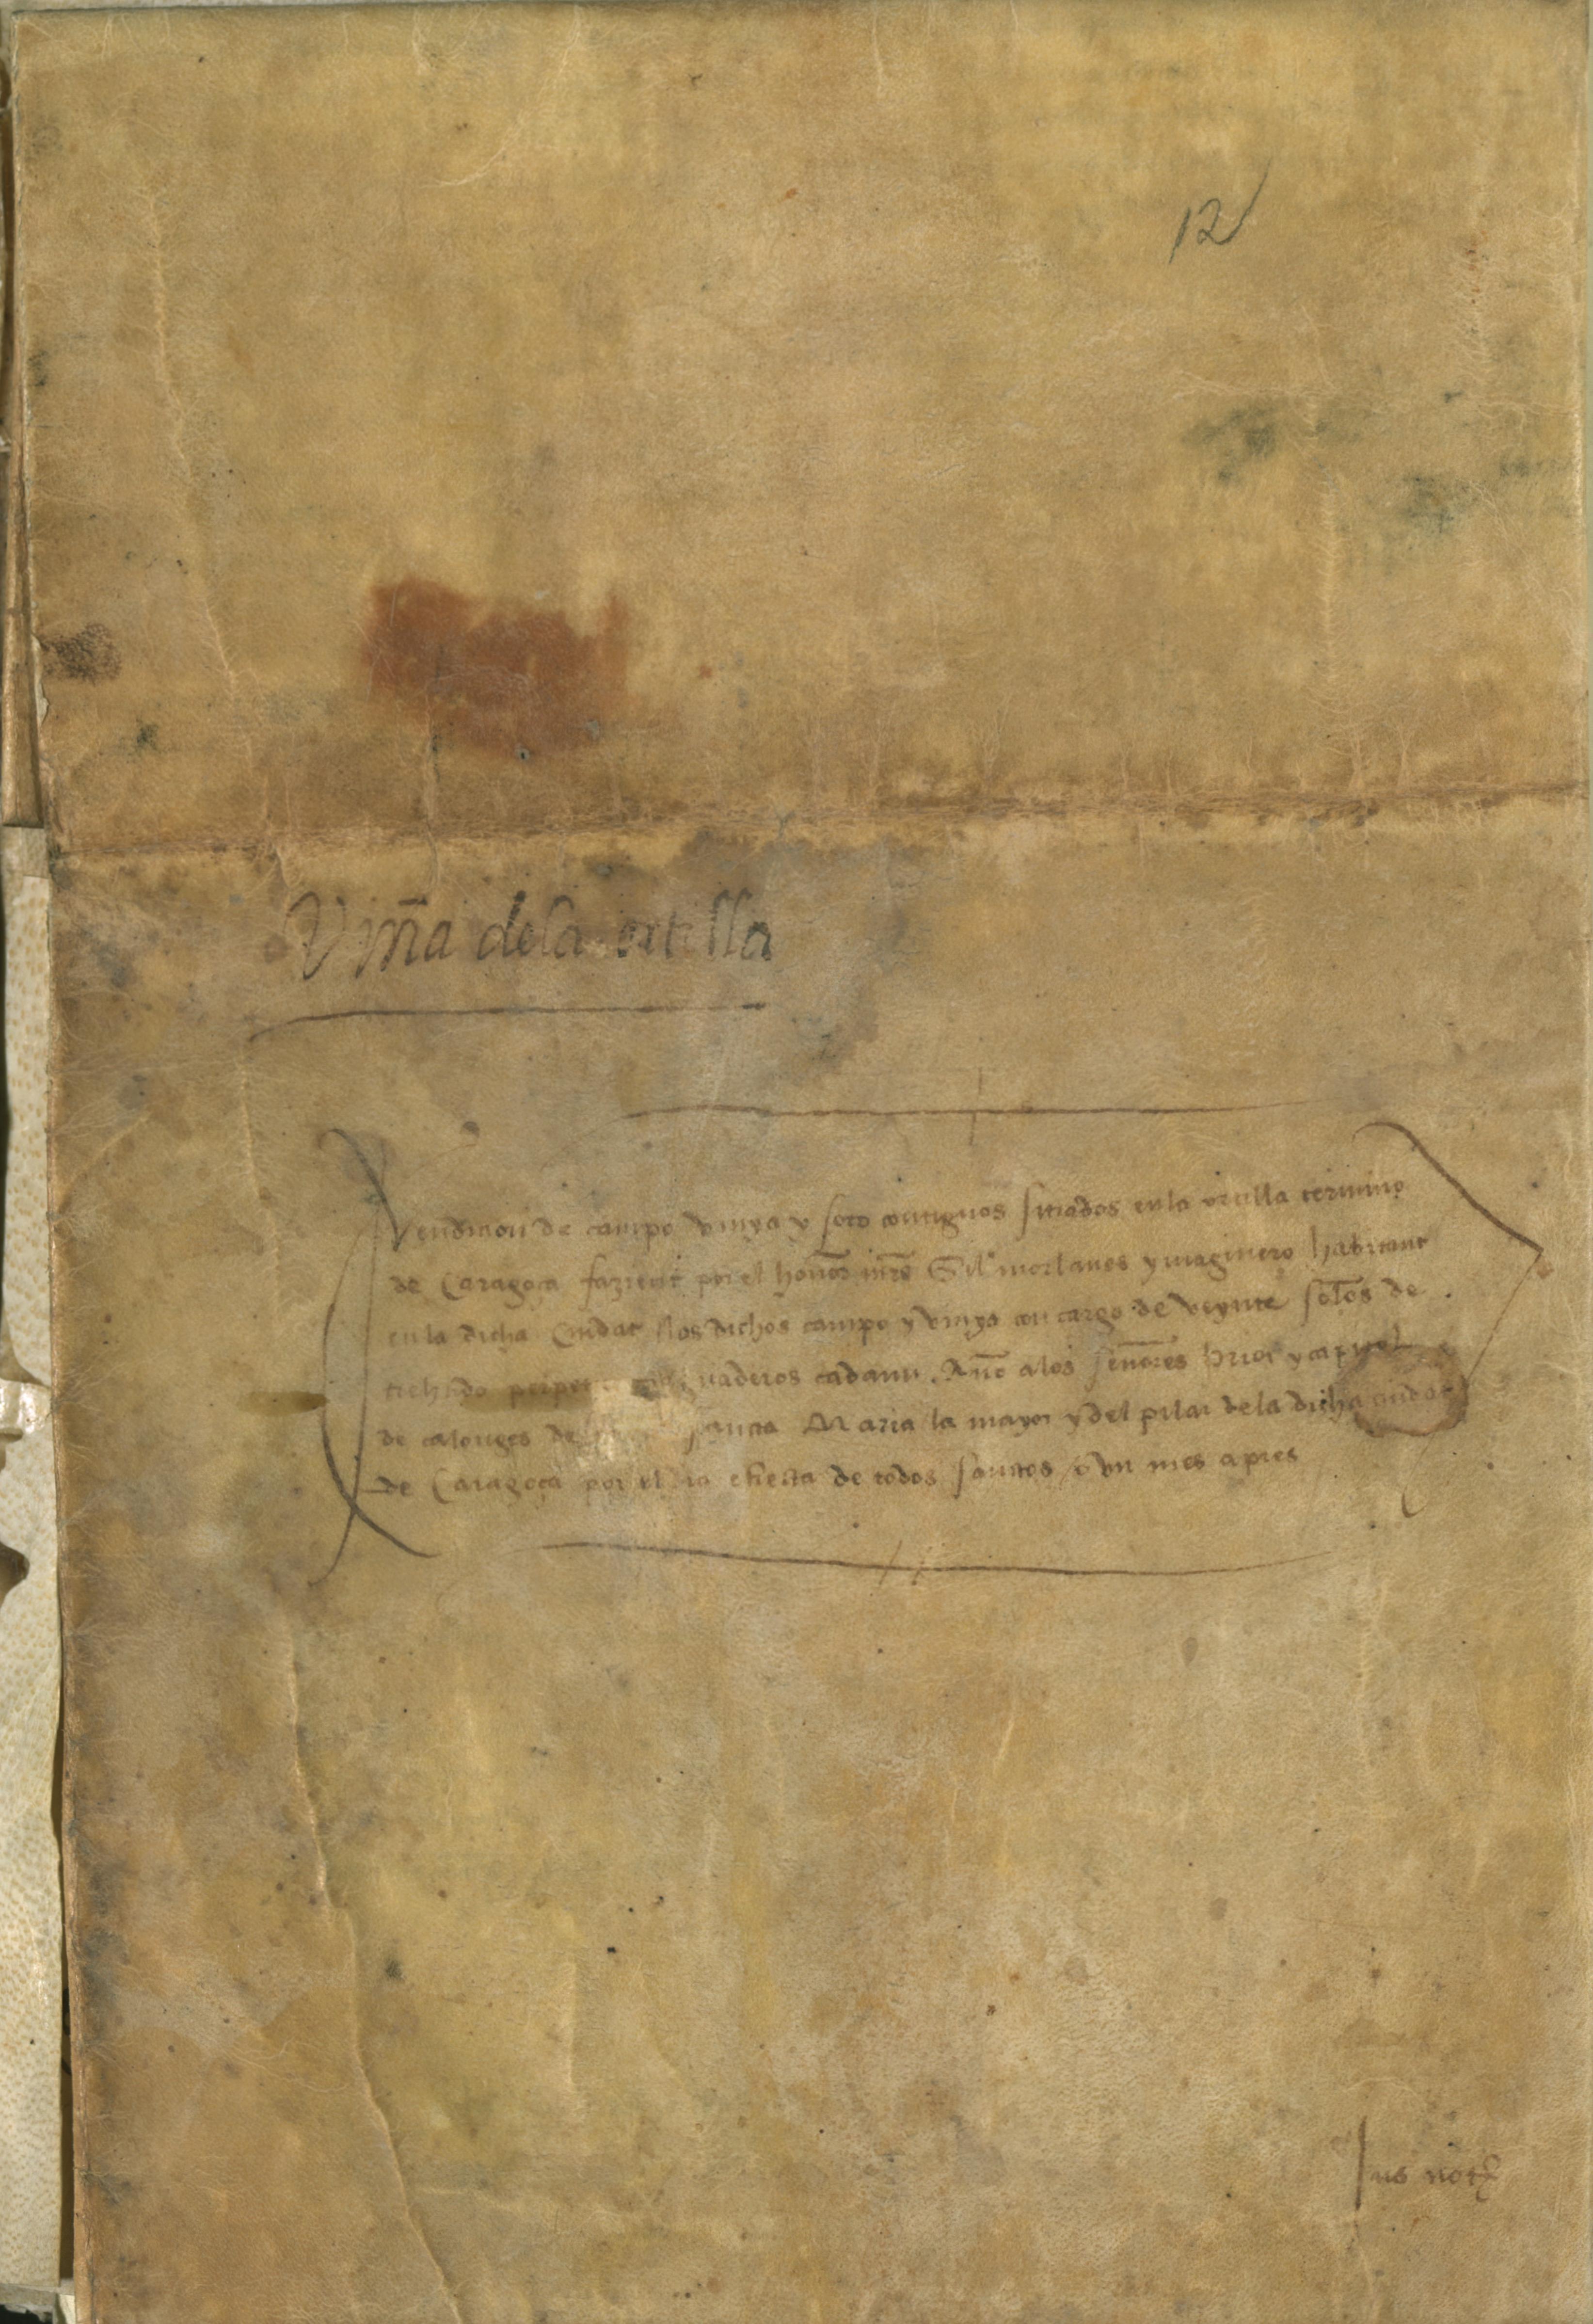 12
Viña de la ortilla
Vendicion de campo vinya y soto contiguos sitiados en la ortilla termino
de Caragoça fazient por el honor mre Gil morlanes ymaginero habitant
en la dicha Ciudat los dichos campo y vinya con cargo de veynte solos de
trehudo perpet uaderos cadanu Anyo a los senores prior y capitol
de calonges de sancta Maria la mayor y del pilar de la dicha ciudat
de Caragoça por el dia e fiesta de todos sanctos o vn mes apres
Jus not